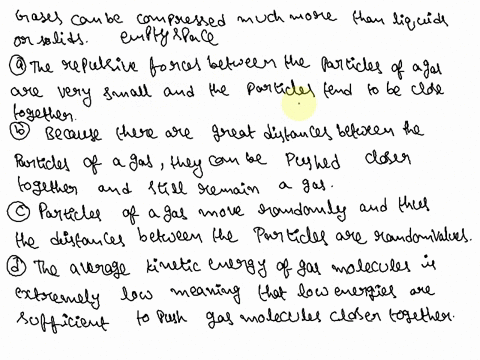 Gases can be compressed much more than liquids
or solids. empty space
(a) The repulsive forces between the particles of a gas
are very small and the particles tend to be close
together.
(b) Because there are great distances between the
Particles of a gas, they can be pushed closer
together and still remain a gas.
(c) Particles of a gas move randomly and thus
the distances between the particles are random values.
(d) The average kinetic energy of gas molecules is
extremely low meaning that low energies are
sufficient to push gas molecules closer together.